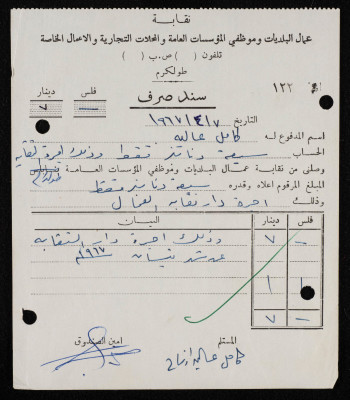 نقابة
عمال البلديات وموظفي المؤسسات العامة والمحلات التجارية والاعمال الخاصة
تلفون ( ) ص.ب ( )
طولكرم
١٢٢
دينار فلس
٧ —
سند صرف
التاريخ ١٩٦٧/٤/٧
اسم المدفوع له كامل
الحساب سبعة دنانير فقط وذلك اجرة
وصلني من نقابة عمال البلديات وموظفي المؤسسات العامة
المبلغ المرقوم اعلاه وقدره سبعة دنانير فقط
وذلك اجرة دار نقابة العمال
فلس دينار البيان
— ٧ وذلك اجرة دار النقابة
عن شهر نيسان ١٩٦٧م
— ٧
المستلم امين الصندوق
كامل